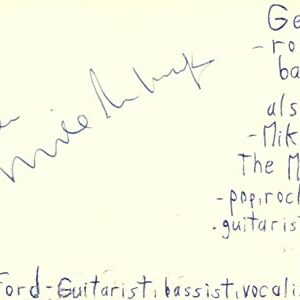 Ge
- ro
ba
als
- Mik
The M
- pop, roc
- guitarist
Ford - Guitarist, bassist, vocali